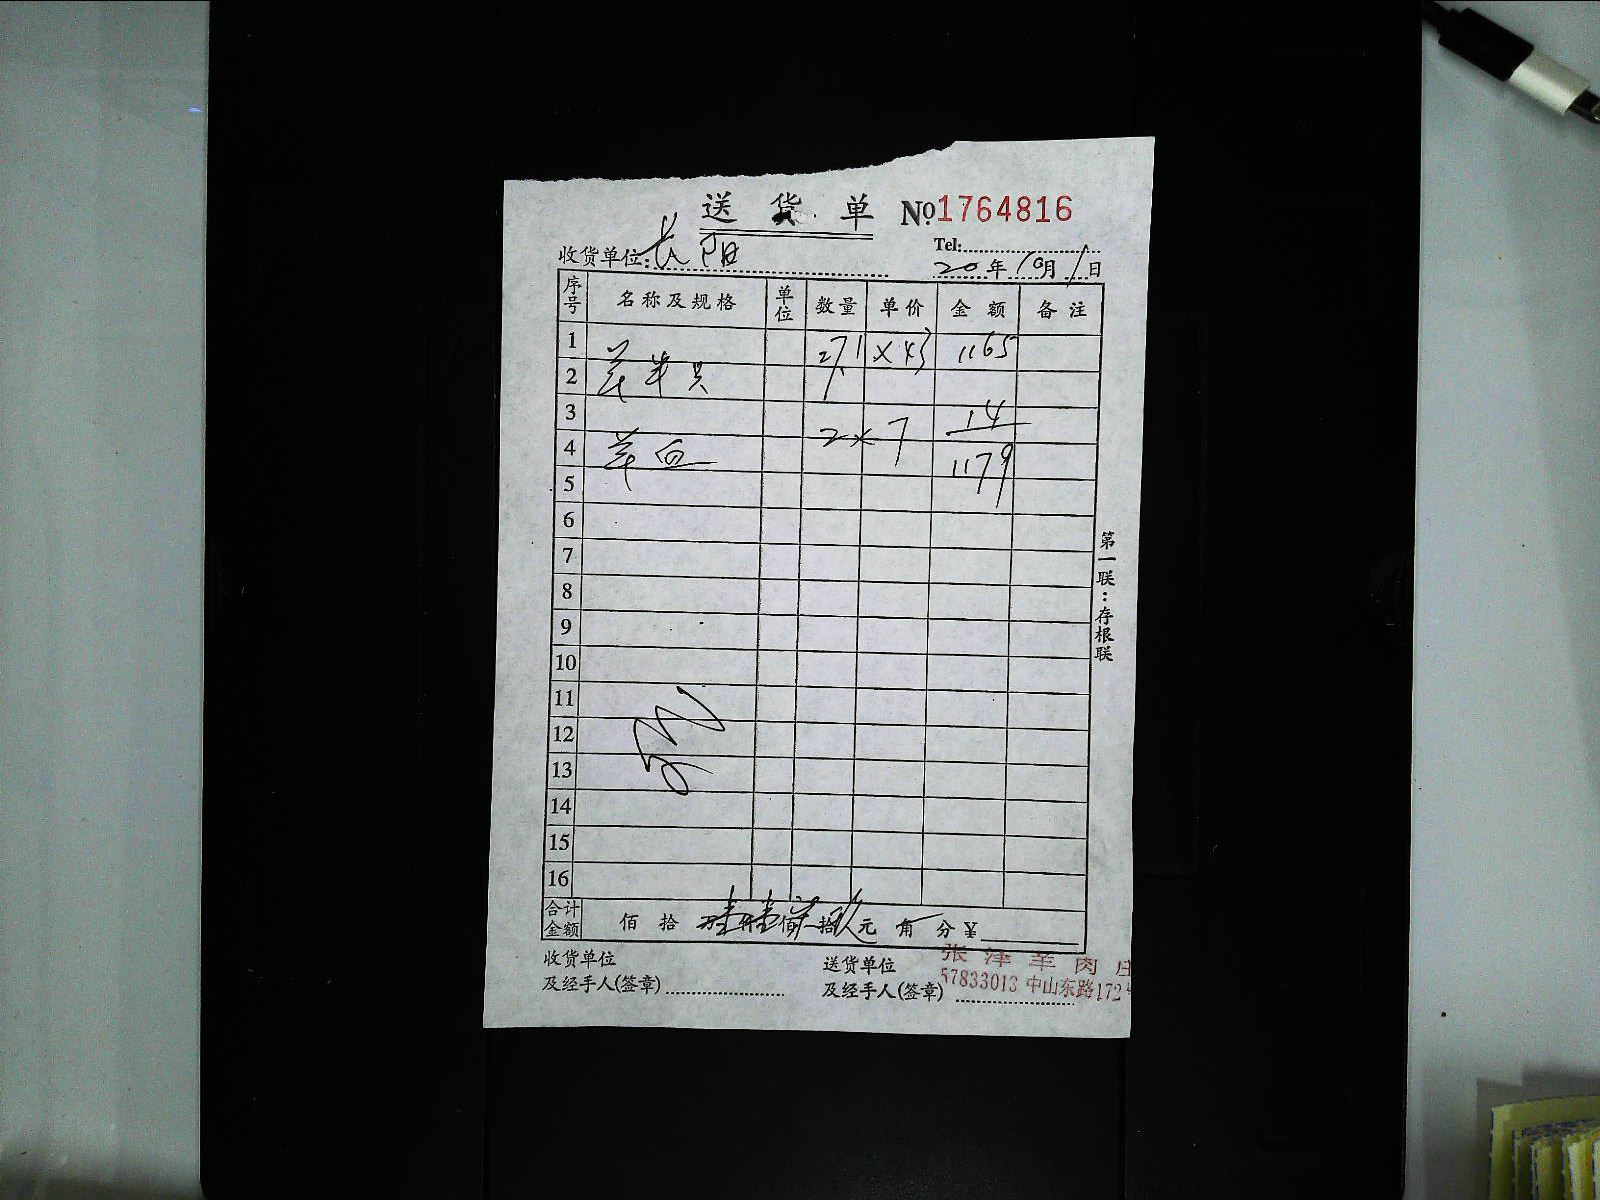 送货单 №1764816
Tel:
收货单位: 长阳 20年10月1日
序号 名称及规格 单位 数量 单价 金额 备注
1 27.1 × 43 1165
2 羊半只
3 14
4 羊血 2 × 7 1179
5
6
7
8
9
10
11
12
13
14
15
16
合计金额 佰 拾 万壹仟壹佰柒拾玖元 角 分 ¥
收货单位 送货单位
及经手人(签章) 及经手人(签章)
张泽羊肉庄
57833013 中山东路172
第一联:存根联